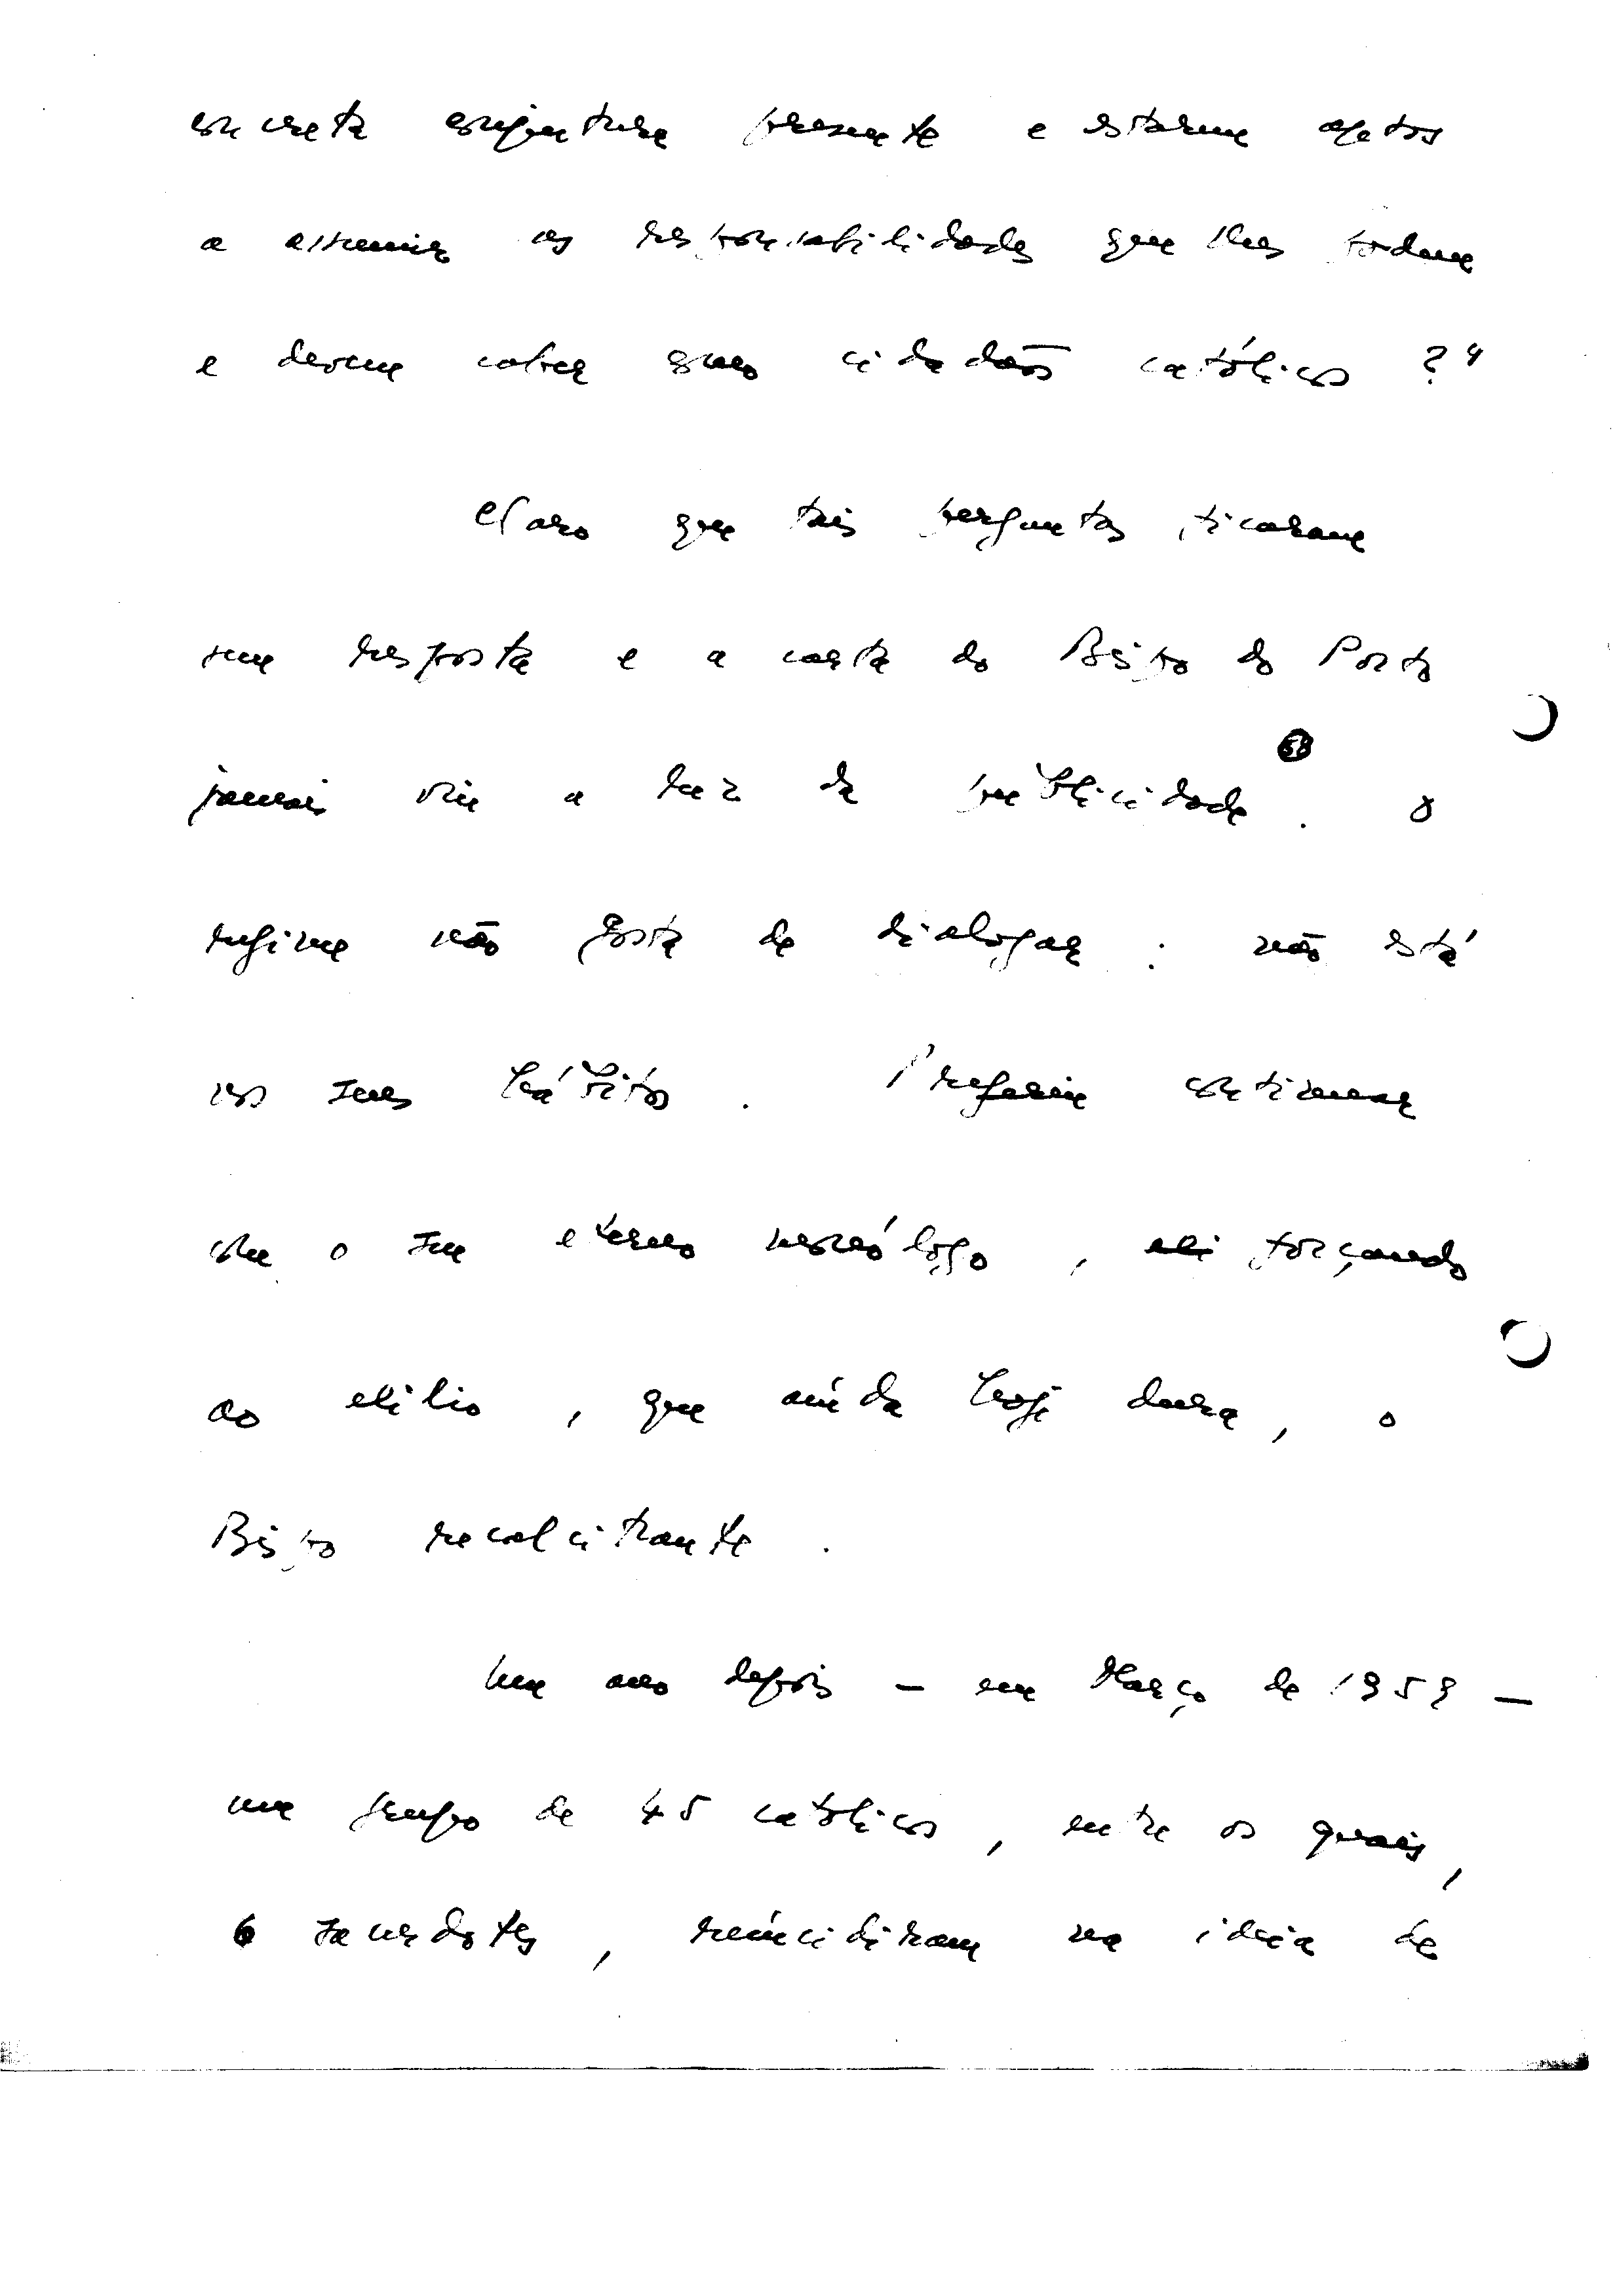 concreta conjuntura presente e estarem aptos
a assumir as responsabilidades que lhes podem
e devem caber como cidadãos católicos ?"
Claro que tais perguntas ficaram
sem resposta e a carta do Bispo do Porto
jamais viu a luz da publicidade (58). O
regime não gosta de dialogar : não está
nos seus hábitos . Preferiu continuar
com o seu eterno monólogo , forçando
ao exílio , que ainda hoje dura , o
Bispo recalcitrante .
Um ano depois – em Março de 1959 –
um grupo de 45 católicos , entre os quais ,
6 sacerdotes , reincidiram na ideia de